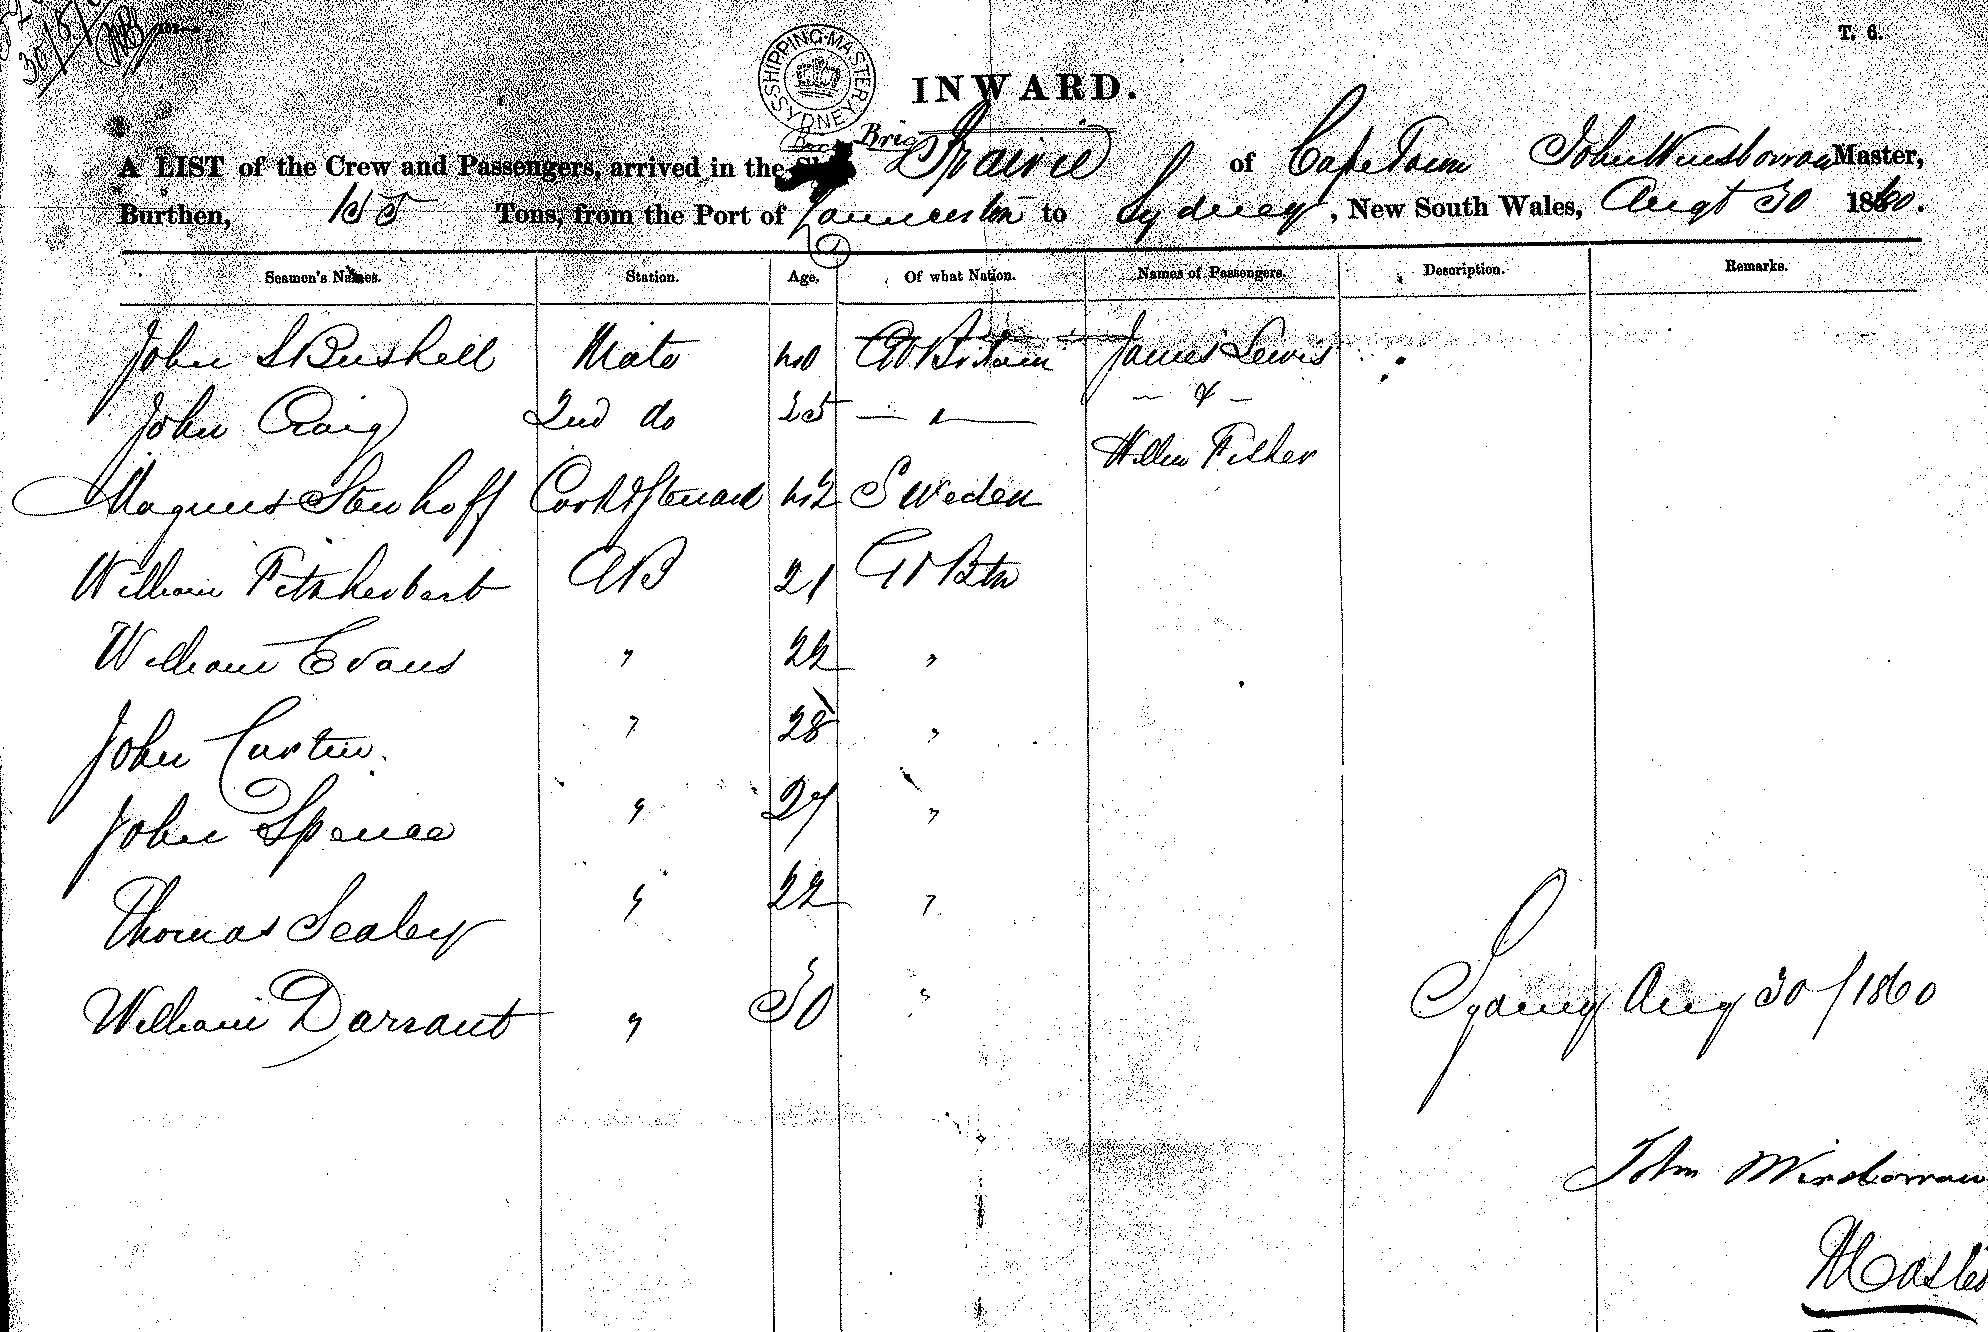 T. 6.
SHIPPING MASTER SYDNEY
INWARD.
Brig
A LIST of the Crew and Passengers, arrived in the Prairie of Cape Town John Winsborrow Master,
Burthen, 155 Tons, from the Port of Launceston to Sydney, New South Wales, Augt 30 1860.
Seamen's Names. Station. Age. Of what Nation. Names of Passengers. Description. Remarks.
John S Bushell Mate 40 Gt Britain James Lewis
- & -
John Craig 2nd do 25 — " —
Willm Fisher
Magnus Stenhoff Cook & Steward 42 Sweden
William Fitzherbert AB 21 Gt Btn
William Evans " 22 "
John Curtin. " 28 "
John Spence " 27 "
Thomas Sealey " 22 "
William Darrant " 30 "
Sydney Aug 30/1860
John Winsborrow
Master